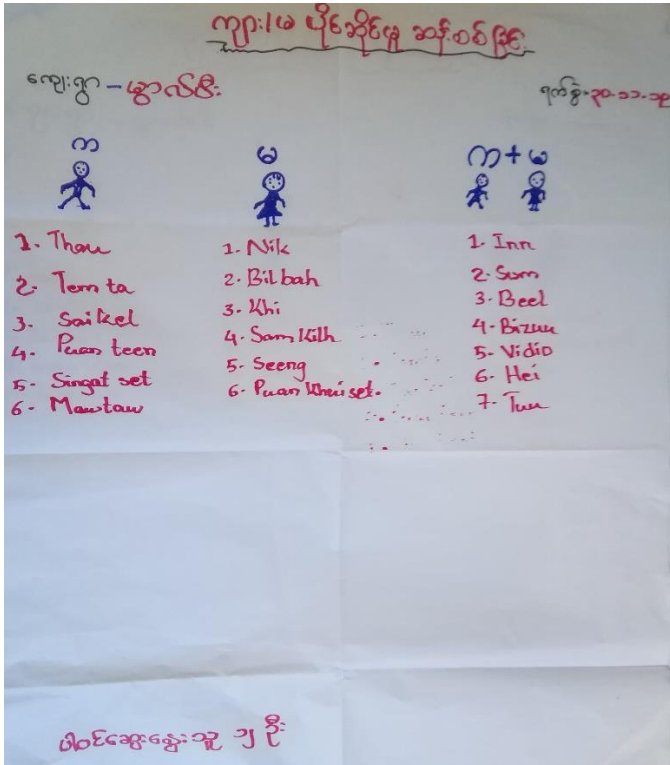 ကျား/မ ပိုင်ဆိုင်မှု ဆန်းစစ်ခြင်း
ကျေးရွာ - ဖွာလ်ဇီး
ရက်စွဲ - ၃၀-၁၁-၁၉
က
မ
က + မ
1. Thau
2. Tem ta
3. Saikel
4. Puan teen
5. Singat set
6. Mawtaw
1. Nik
2. Bilbah
3. Khi
4. Sam Kilh
5. Seeng
6. Puan Khui set.
1. Inn
2. Sum
3. Beel
4. Bizuu
5. Vidio
6. Hei
7. Tuu
ပါဝင်ဆွေးနွေးသူ ၅ ဦး